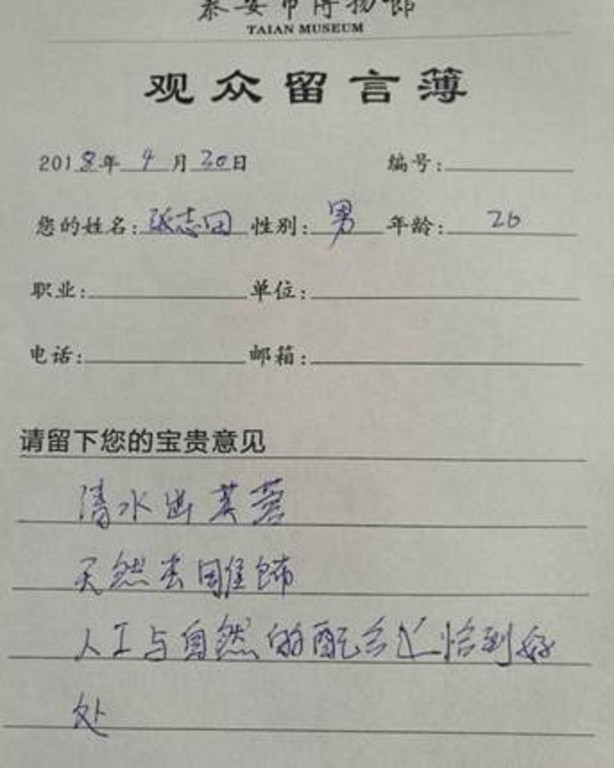 泰安市博物馆
TAIAN MUSEUM
观众留言薄
2018年4月30日 编号:
您的姓名:张志田 性别:男 年龄:20
职业: 单位:
电话: 邮箱:
请留下您的宝贵意见
清水出芙蓉
天然去雕饰
人工与自然的配合恰到好
处